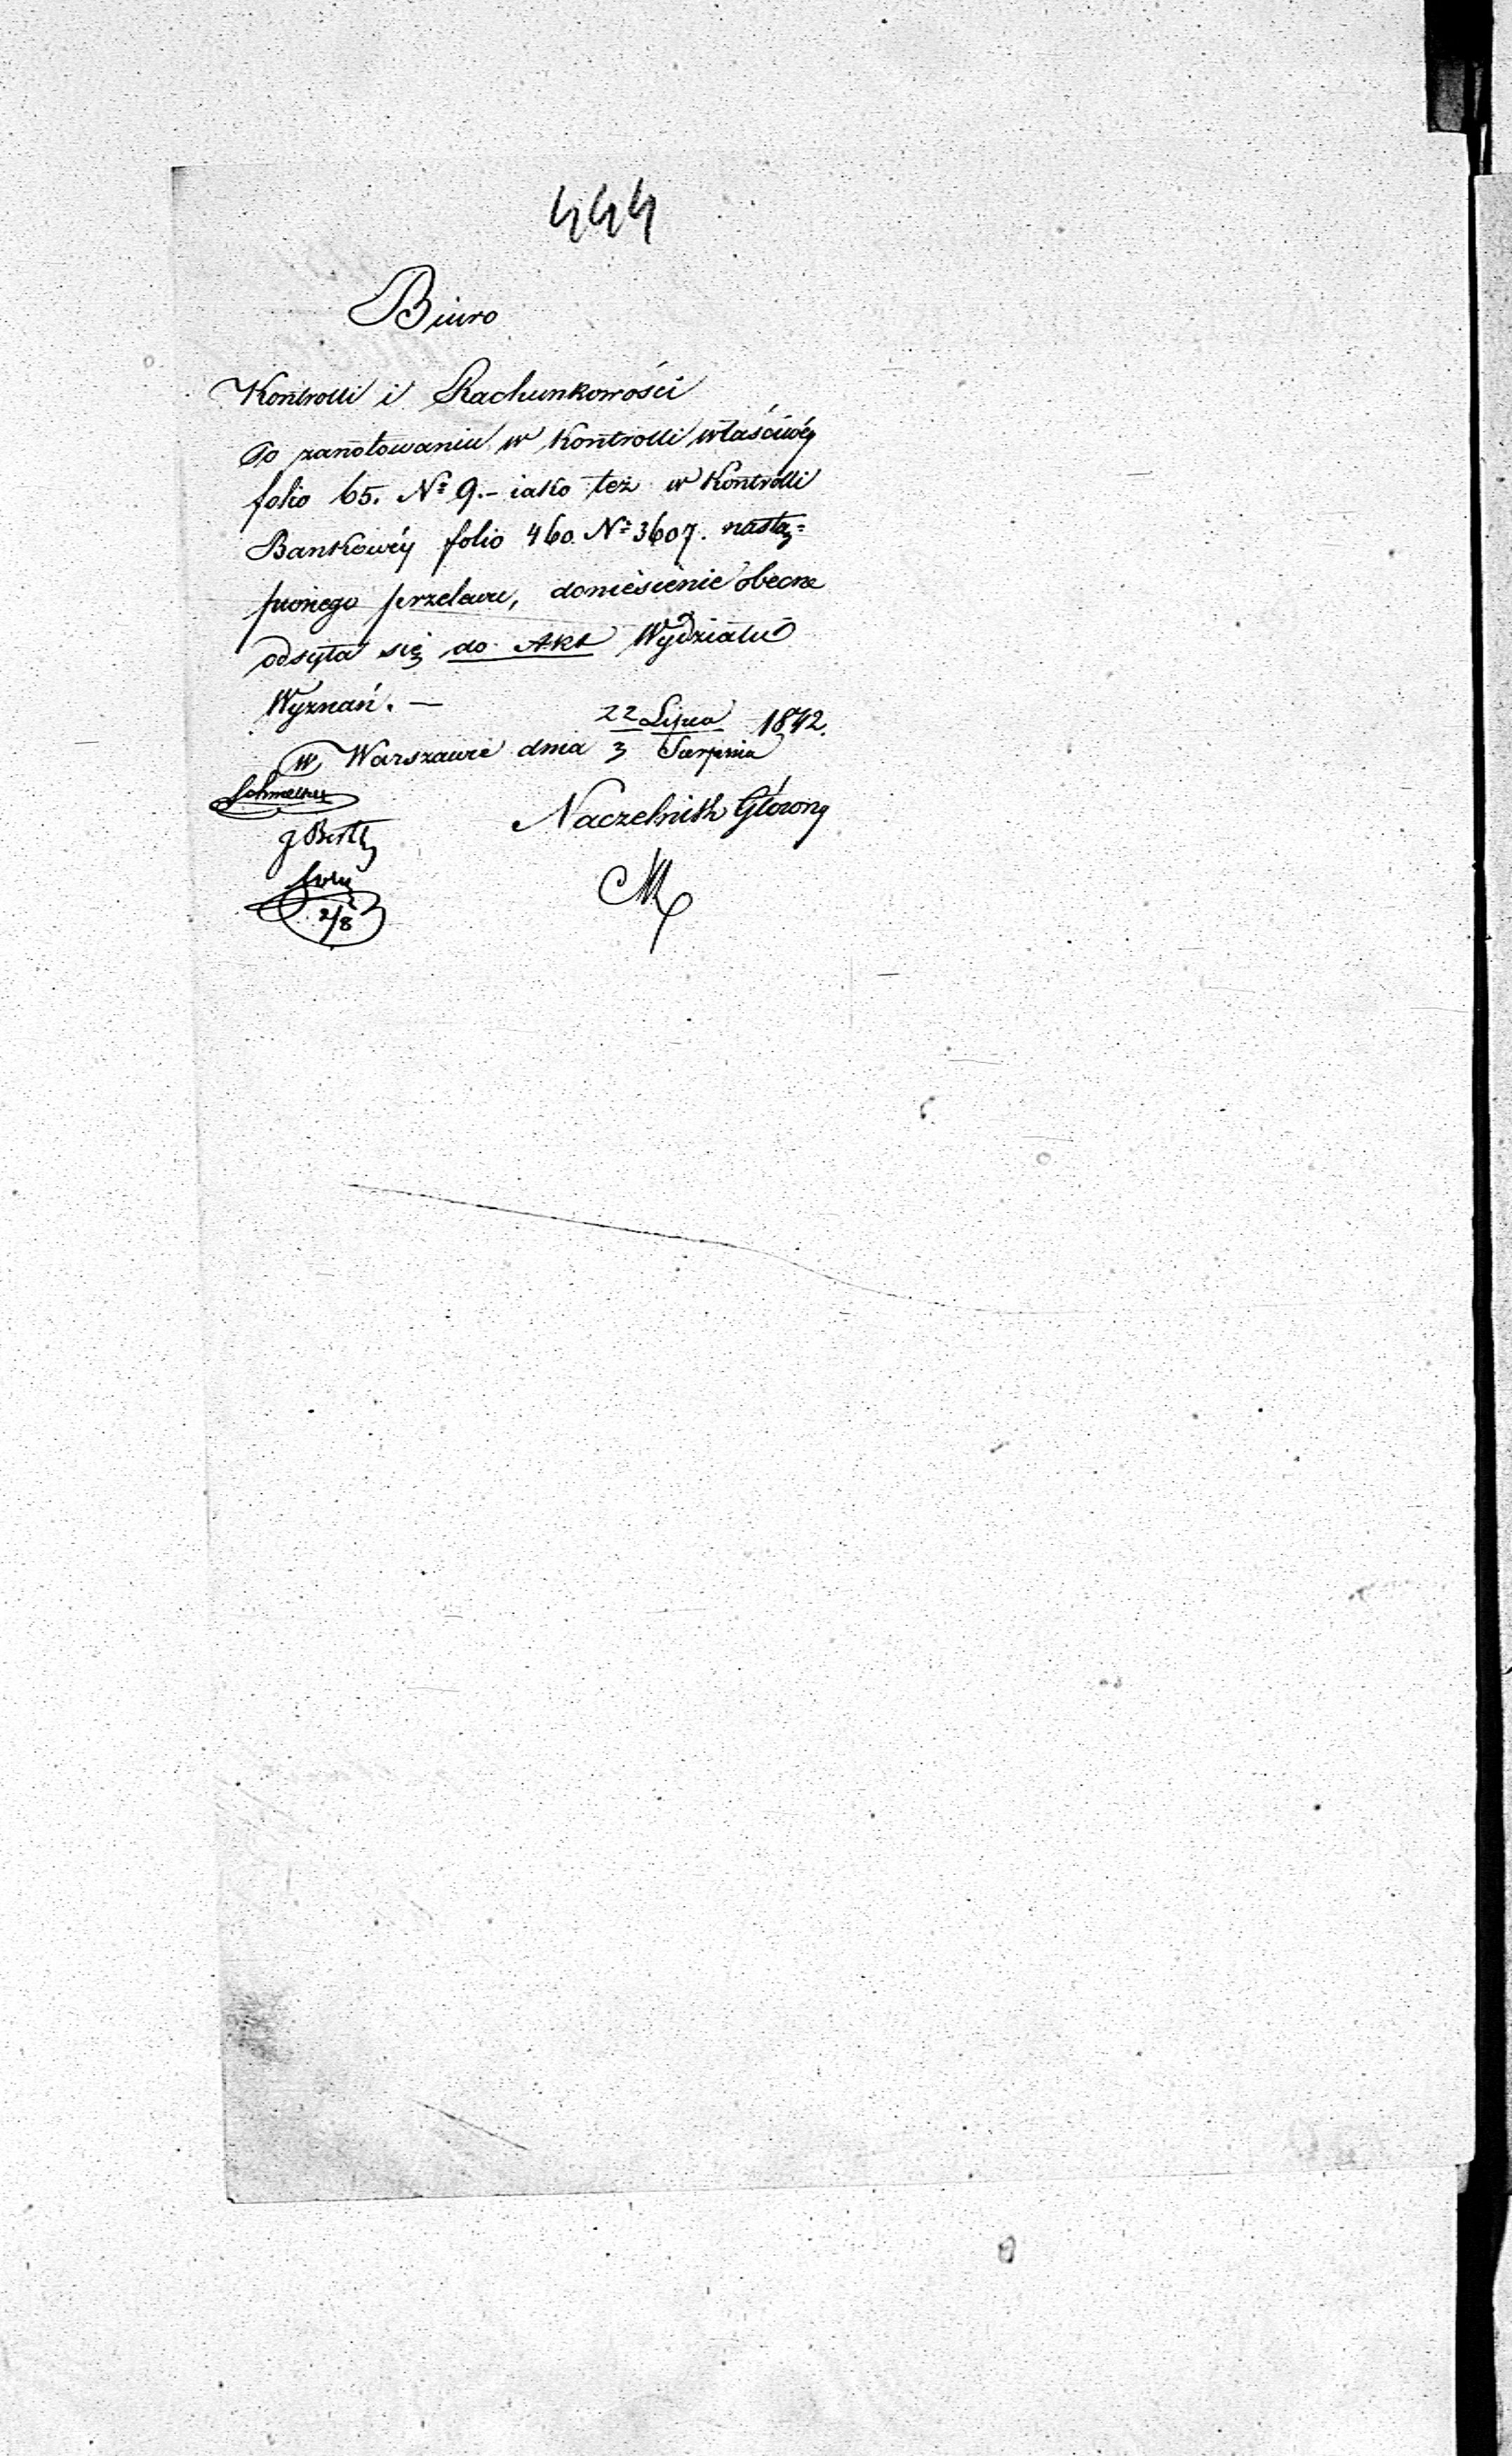 444
Biuro
Kontrolli i Rachunkowości
Po zanotowaniu w Kontrolli właściwéy
folio 65. Nº 9.– iako też w Kontrolli
Bankowéy folio 460. Nº 3607. nastą=
pionego przelewu, doniesienie obecne
odsyła się do Akt Wydziału
Wyznań. —
w Warszawie dnia 22 Lipca / 3 Sierpnia 1842.
Naczelnik Główny
2/8